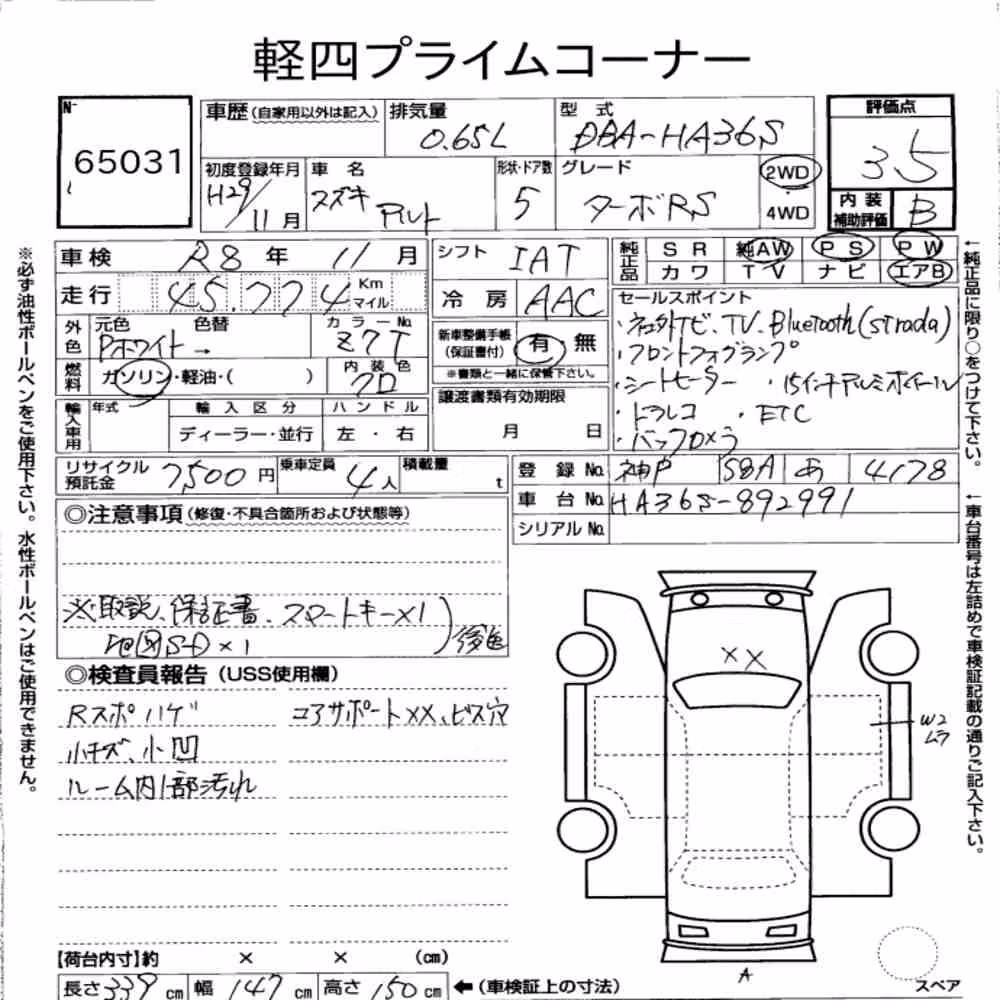 軽四プライムコーナー
No. 65031
車歴(自家用以外は記入) 排気量 0.65L 型式 DBA-HA36S
初度登録年月 H29/11月 車名 スズキ アルト 形状・ドア数 5 グレード ターボRS 2WD・4WD
評価点 3.5
内装補助評価 B
車検 R8年 11月 シフト IAT
走行 45.774 Km マイル 冷房 AAC
純正品 SR 純AW PS PW
カワ TV ナビ エアB
外色 元色 Pホワイト 色替 → カラーNo. Z7T
燃料 ガソリン・軽油・( ) 内装色 クロ
新車整備手帳(保証書付) 有・無
※書類と一緒に保管下さい。
輸入車用 年式 輸入区分 ディーラー・並行 ハンドル 左・右
譲渡書類有効期限 月 日
セールスポイント
・社外ナビ、TV、Bluetooth(strada)
・フロントフォグランプ
・シートヒーター ・15インチアルミホイール
・ドラレコ ・ETC
・バックカメラ
リサイクル預託金 7,500円 乗車定員 4人 積載量 t
登録No. 神戸 58A あ 4178
車台No. HA36S-892991
シリアルNo.
◎注意事項(修復・不具合箇所および状態等)
※取説、保証書、スマートキー×1
地図SD×1 )後送
◎検査員報告(USS使用欄)
Rスポハゲ コアサポートXX、ビス穴
小キズ、小凹
ルーム内1部汚れ
XX
W2
ムラ
A
スペア
【荷台内寸】約 × × (cm)
長さ 339 cm 幅 147 cm 高さ 150 cm ←(車検証上の寸法)
※必ず油性ボールペンをご使用下さい。水性ボールペンはご使用できません。
←純正品に限り○をつけて下さい。
←車台番号は左詰めで車検証記載の通りご記入下さい。